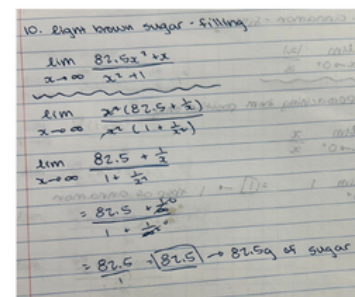 10. light brown sugar - filling
lim x→∞ 82.5x²+x / x²+1
lim x→∞ x²(82.5 + 1/x) / x²(1 + 1/x²)
lim x→∞ 82.5 + 1/x / 1 + 1/x²
= 82.5 + 1/∞ 0 / 1 + 1/∞ 0
= 82.5 / 1 = 82.5 → 82.5g of sugar